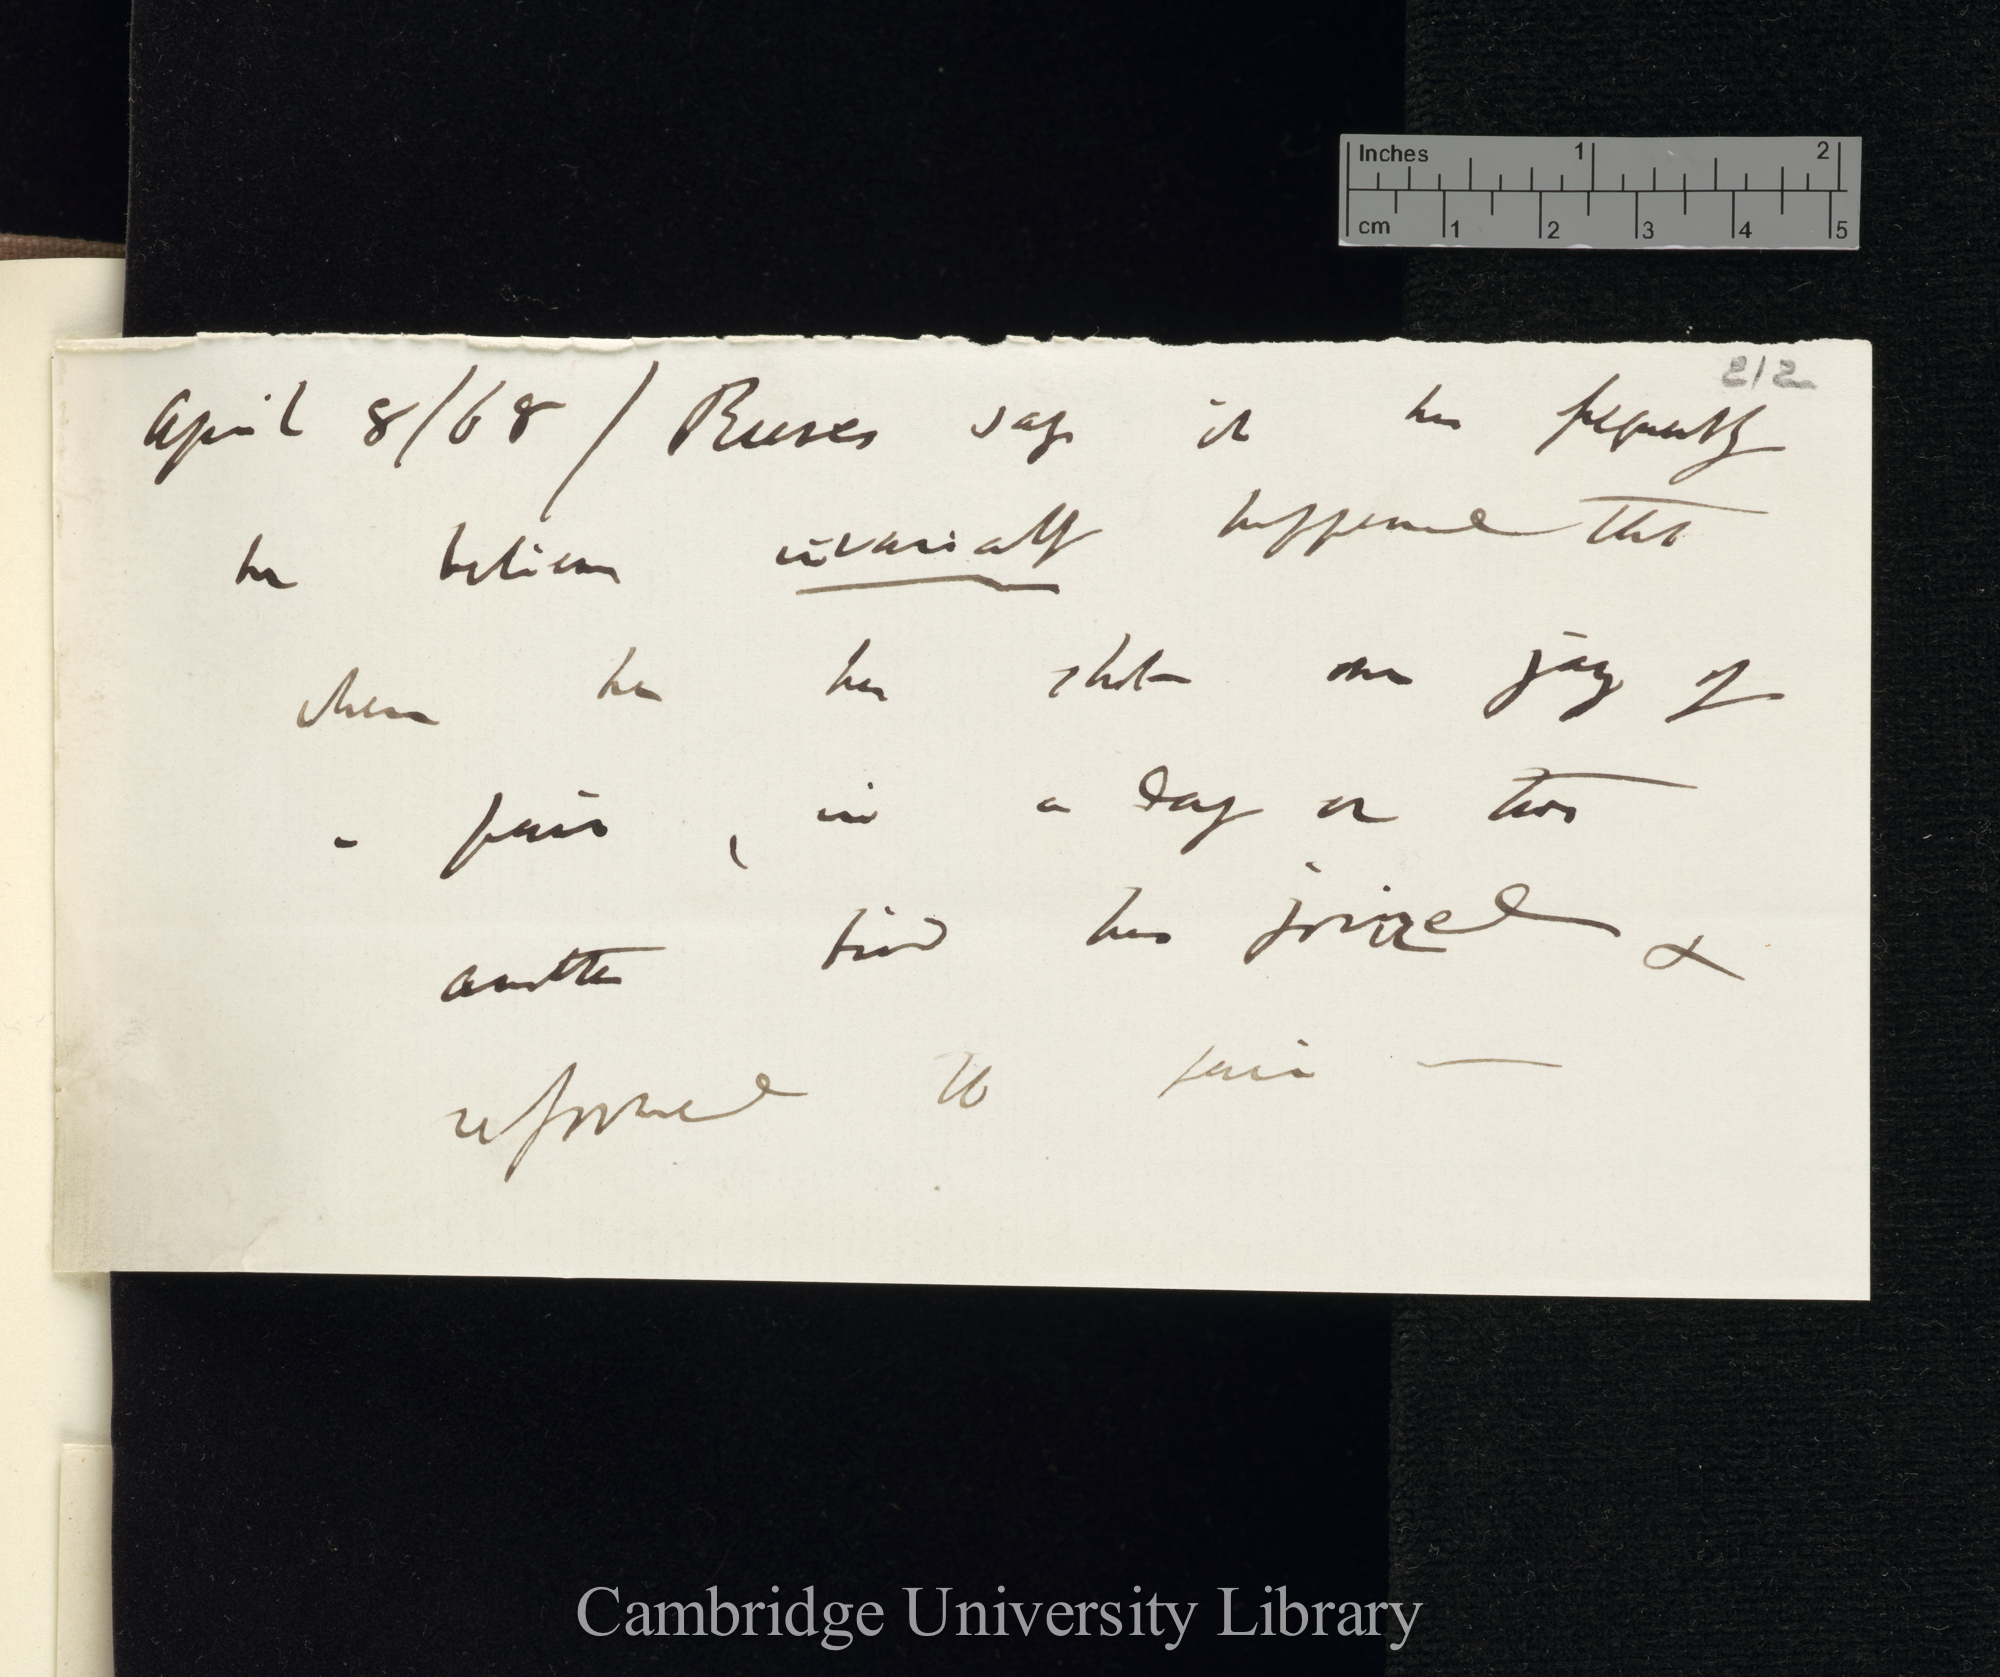 Inches 1 2
cm 1 2 3 4 5
212
April 8/68 / Reeves says it has frequently
he believes invariably happened that
when he has shot one jay of
a pair, in a day or two
another bird has joined &
reformed the pair —
Cambridge University Library